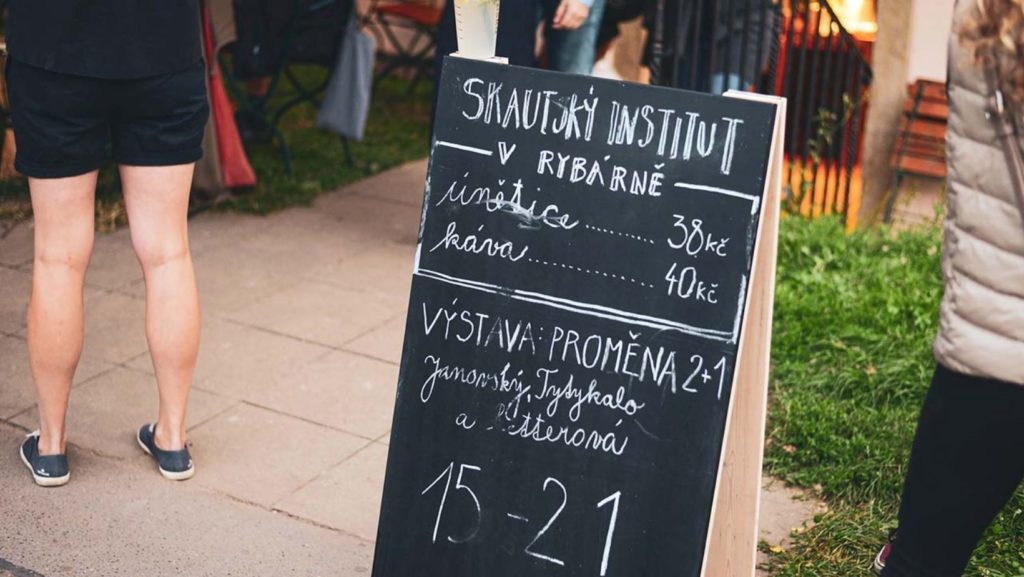 SKAUTSKÝ INSTITUT
V RYBÁRNĚ
únětice ........... 38kč
káva ............... 40kč
VÝSTAVA: PROMĚNA 2+1
Janovský, Tytykalo
a
15-21